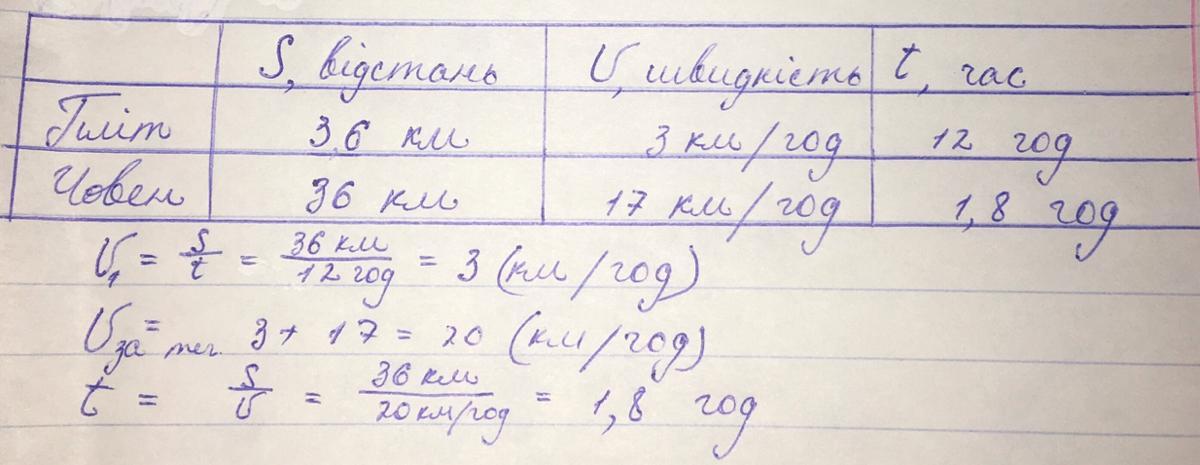 S, відстань V, швидкість t, час
Пліт 36 км 3 км/год 12 год
Човен 36 км 17 км/год 1,8 год
V₁ = S/t = 36 км/12 год = 3 (км/год)
Vза теч. = 3 + 17 = 20 (км/год)
t = S/V = 36 км/20 км/год = 1,8 год